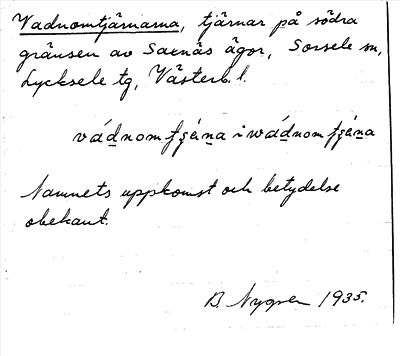 Vadnomtjärnarna, tjärnar på södra
gränsen av Saxnäs ägor, Sorsele sn,
Lycksele tg, Västerb. l.
vád̲nom
Namnets uppkomst och betydelse
obekant.
B. Nygren 1935.